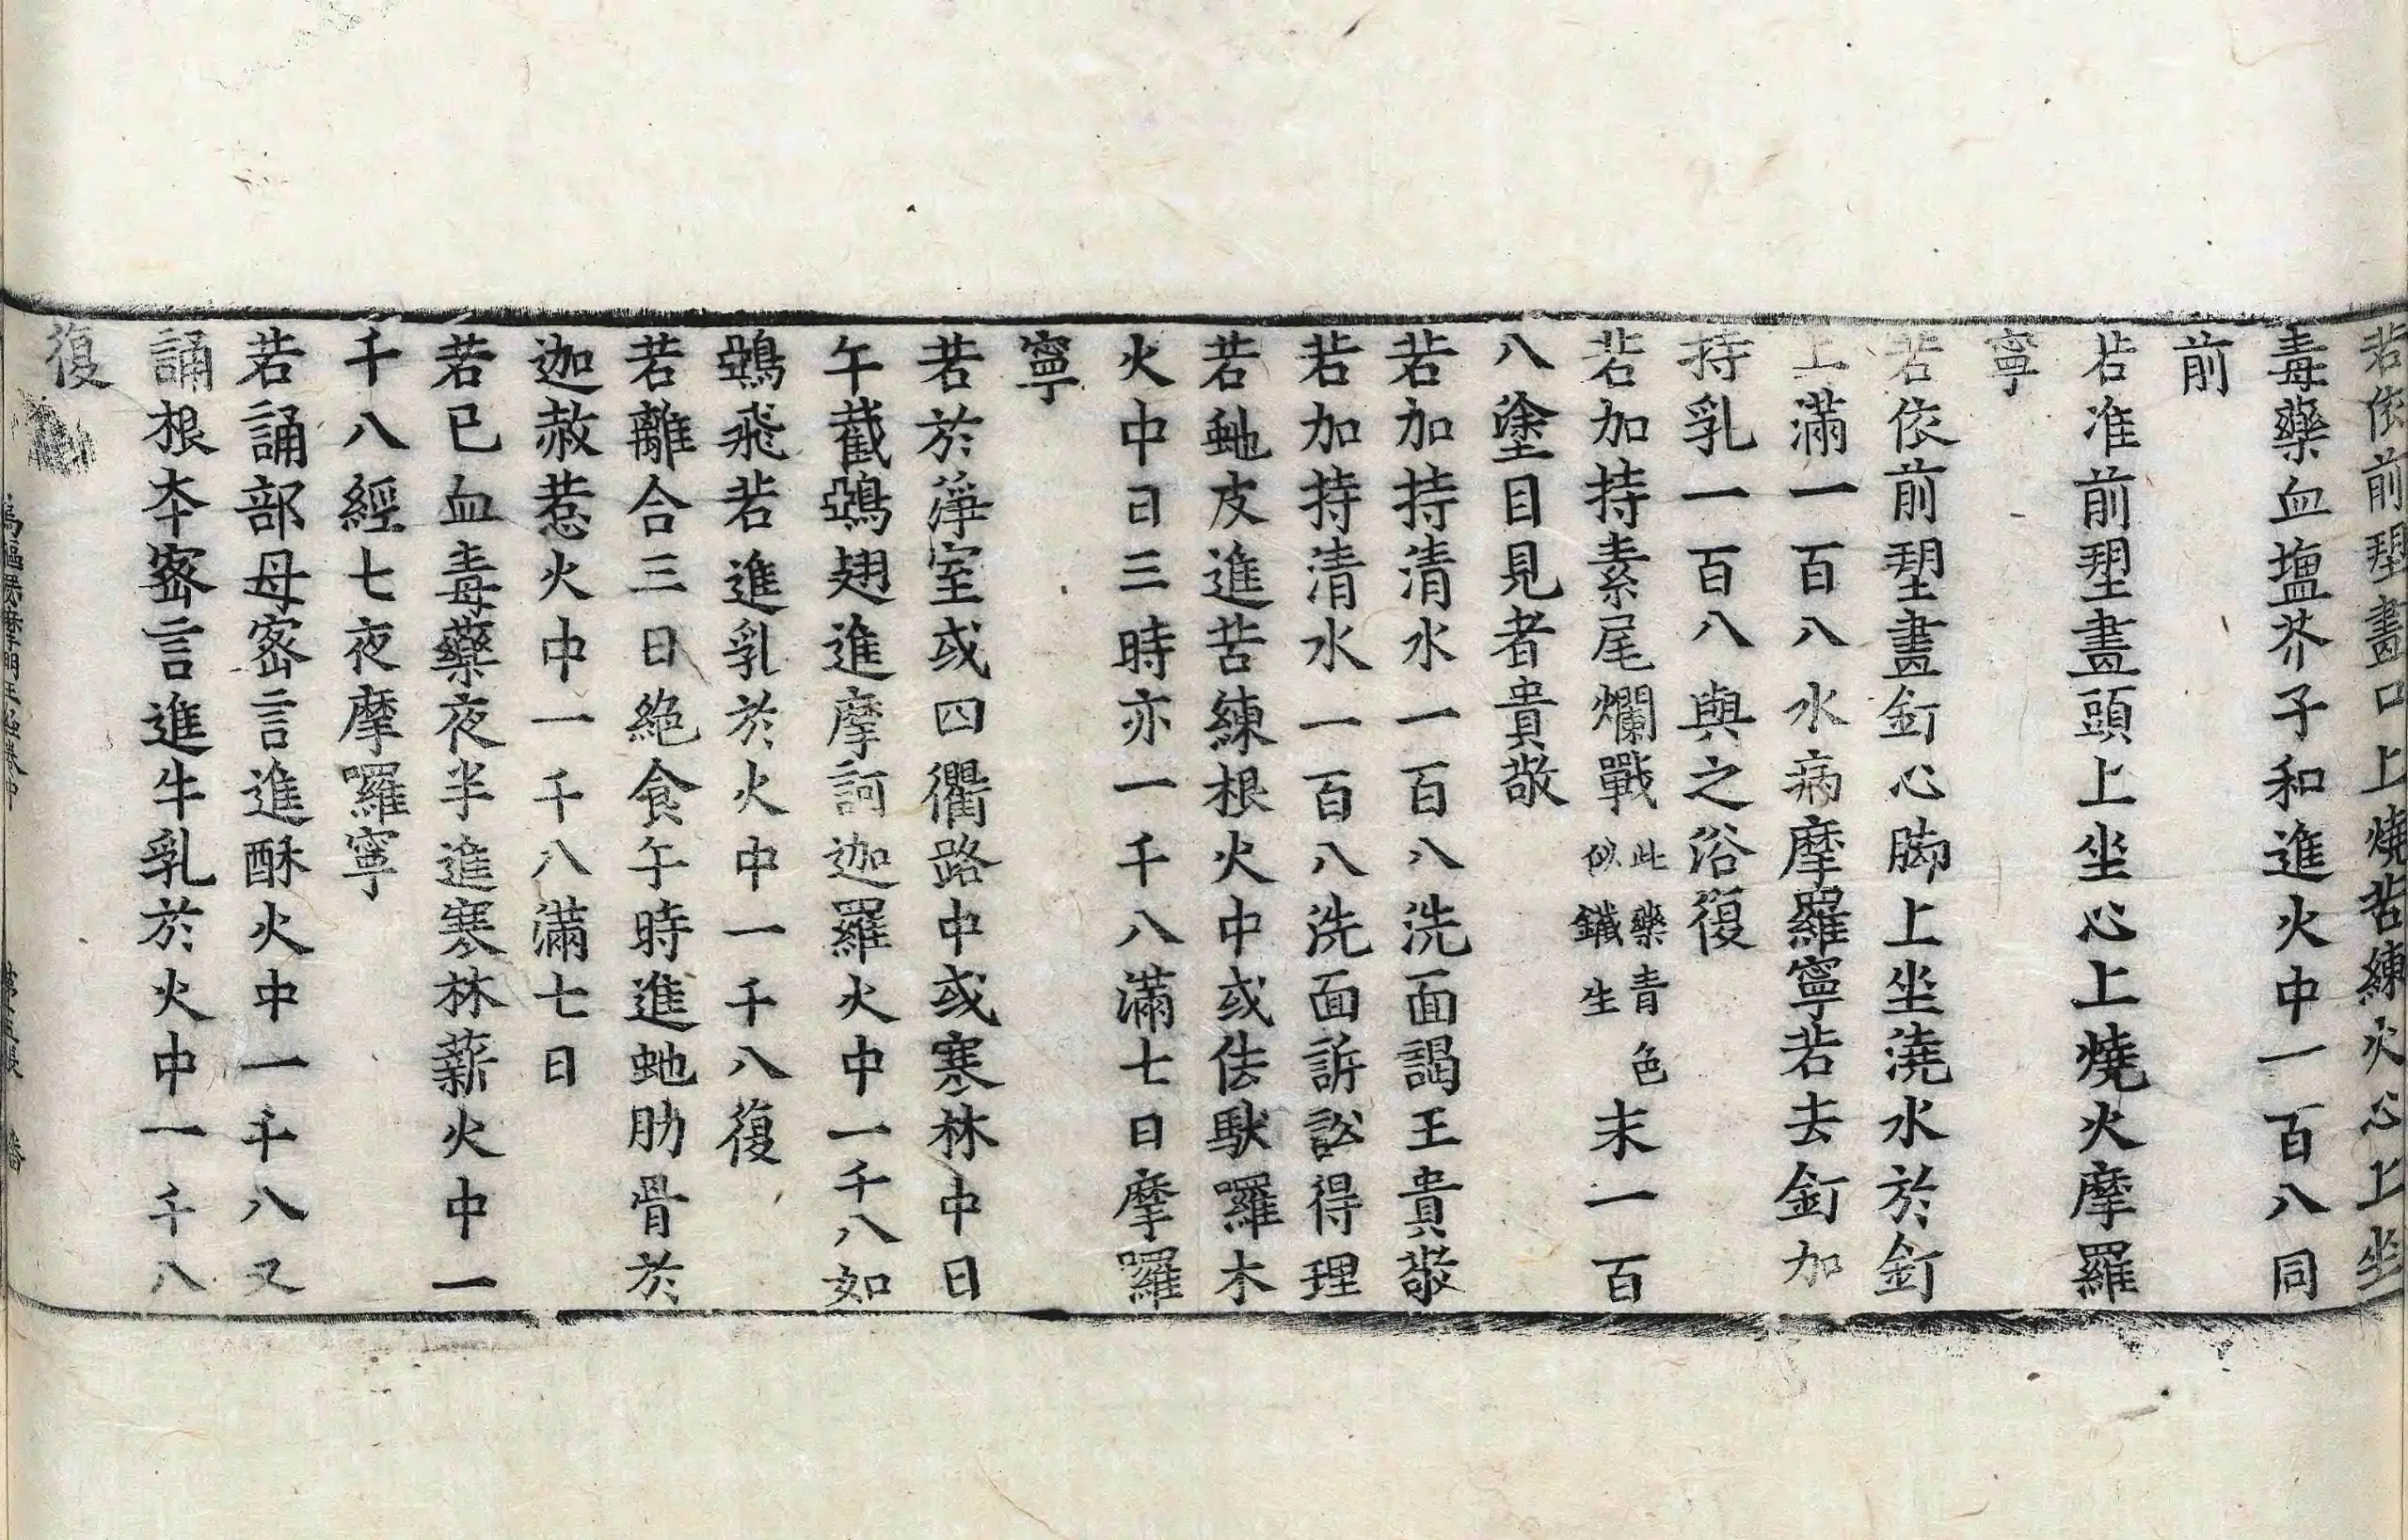 若依前捏畫口上燒苦練火心上坐
毒藥血塩芥子和進火中一百八同
前
若准前捏畫頭上坐心上燒火摩羅
寧
若依前捏畫釘心脚上坐澆水於釘
上滿一百八水病摩羅寧若去釘加
持乳一百八與之浴復
若加持素尾爛戰此藥青色似鐵生末一百
八塗目見者貴敬
若加持清水一百八洗面謁王貴敬
若加持清水一百八洗面訴訟得理
若虵皮進苦練根火中或佉馱囉木
火中日三時亦一千八滿七日摩囉
寧
若於淨室或四衢路中或寒林中日
午截鵶翅進摩訶迦羅火中一千八如
鵶飛若進乳於火中一千八復
若離合三日絶食午時進虵肋骨於
迦赦惹火中一千八滿七日
若已血毒藥夜半進寒林薪火中一
千八經七夜摩囉寧
若誦部母密言進酥火中一千八又
誦根本密言進牛乳於火中一千八
復